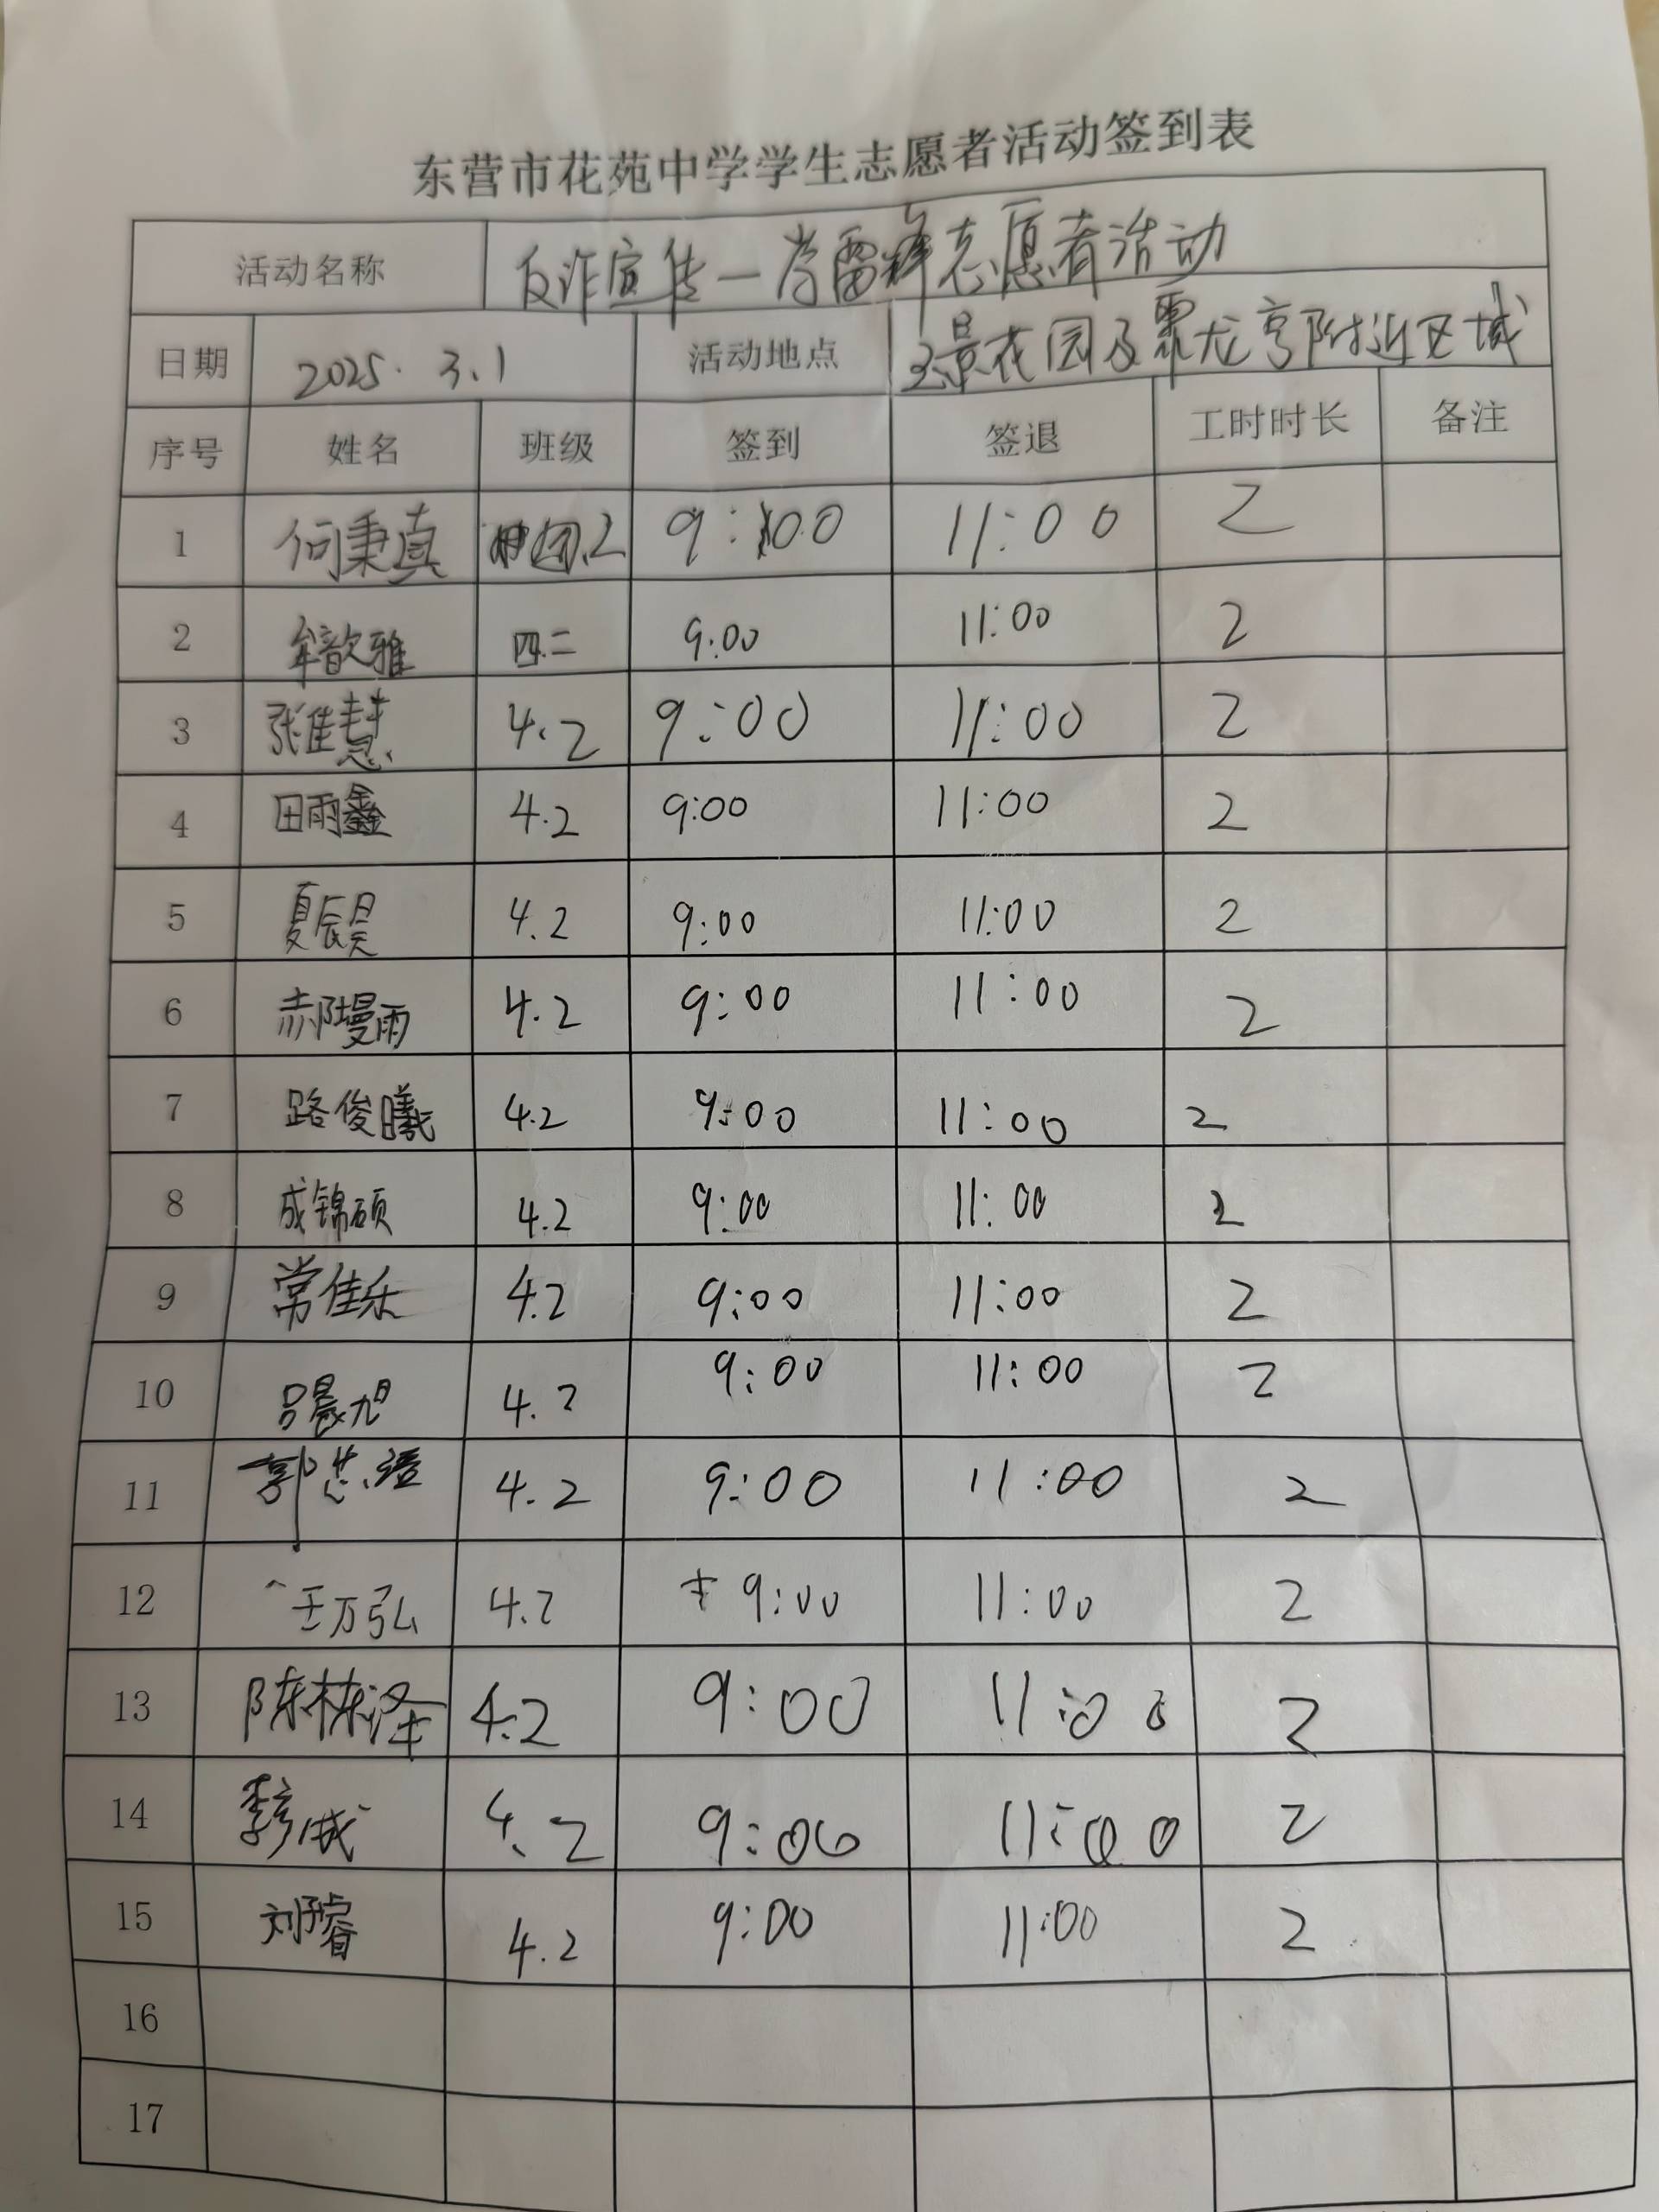 东营市花苑中学学生志愿者活动签到表
活动名称 反诈宣传—学雷锋志愿者活动
日期 2025.3.1 活动地点 景花园及 龙亨附近区域
序号 姓名 班级 签到 签退 工时时长 备注
1 何秉真 四.2 9:00 11:00 2
2 牟歆雅 四.二 9:00 11:00 2
3 张佳慧 4.2 9:00 11:00 2
4 田雨鑫 4.2 9:00 11:00 2
5 夏辰昊 4.2 9:00 11:00 2
6 郝墁雨 4.2 9:00 11:00 2
7 路俊曦 4.2 9:00 11:00 2
8 成锦硕 4.2 9:00 11:00 2
9 常佳乐 4.2 9:00 11:00 2
10 吕晨旭 4.2 9:00 11:00 2
11 郭芯语 4.2 9:00 11:00 2
12 王万弘 4.2 9:00 11:00 2
13 陈栋泽 4.2 9:00 11:00 2
14 李彦成 4.2 9:00 11:00 2
15 刘子睿 4.2 9:00 11:00 2
16
17